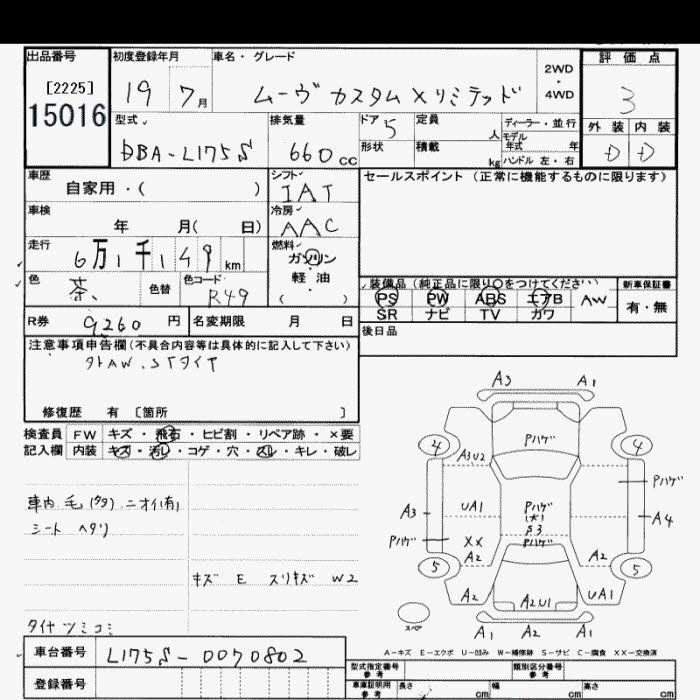 出品番号 初度登録年月 車名・グレード 評価点
[2225]
15016
19 7月 ムーヴ カスタム Xリミテッド 2WD・4WD 3
型式 排気量 ドア 5 定員 人 ディーラー・並行 外装 内装
DBA-L175S 660cc 形状 積載 kg モデル年式 年 D D
ハンドル 左・右
車歴 シフト セールスポイント(正常に機能するものに限ります)
自家用・( ) IAT
車検 冷房
年 月( 日) AAC
走行 燃料
6万1千149km ガソリン
色 色替 色コード 軽・油
茶、 R49 ( )
装備品(純正品に限り○をつけてください) 新車保証書
PS PW ABS エアB AW 有・無
SR ナビ TV カワ
R券 9260円 名変期限 月 日 後日品
注意事項申告欄(不具合内容等は具体的に記入して下さい)
外AW.STタイヤ
修復歴 有 〔箇所 〕
検査員 FW キズ・飛石・ヒビ割・リペア跡・×要
記入欄 内装 キズ・汚レ・コゲ・穴・スレ・キレ・破レ
車内 毛 ニオイ(有)
シート ヘタリ
キズ E スリキズ W2
タイヤ ツミコミ
A3 A1
4 Pハゲ 4
A3U2
Pハゲ
A3 UA1 Pハゲ A4
(大)
S3
Pハゲ XX Pハゲ
A2 A2
5 5
A2 A2U1 UA1
スペア
A1 A2 A1
A-キズ E-エクボ U-凹み W-補修跡 S-サビ C-腐食 XX-交換済
車台番号 L175S-0070802
型式指定番号 参考 類別区分番号 参考
登録番号 車庫証明用 参考 長さ cm 幅 cm 高さ cm